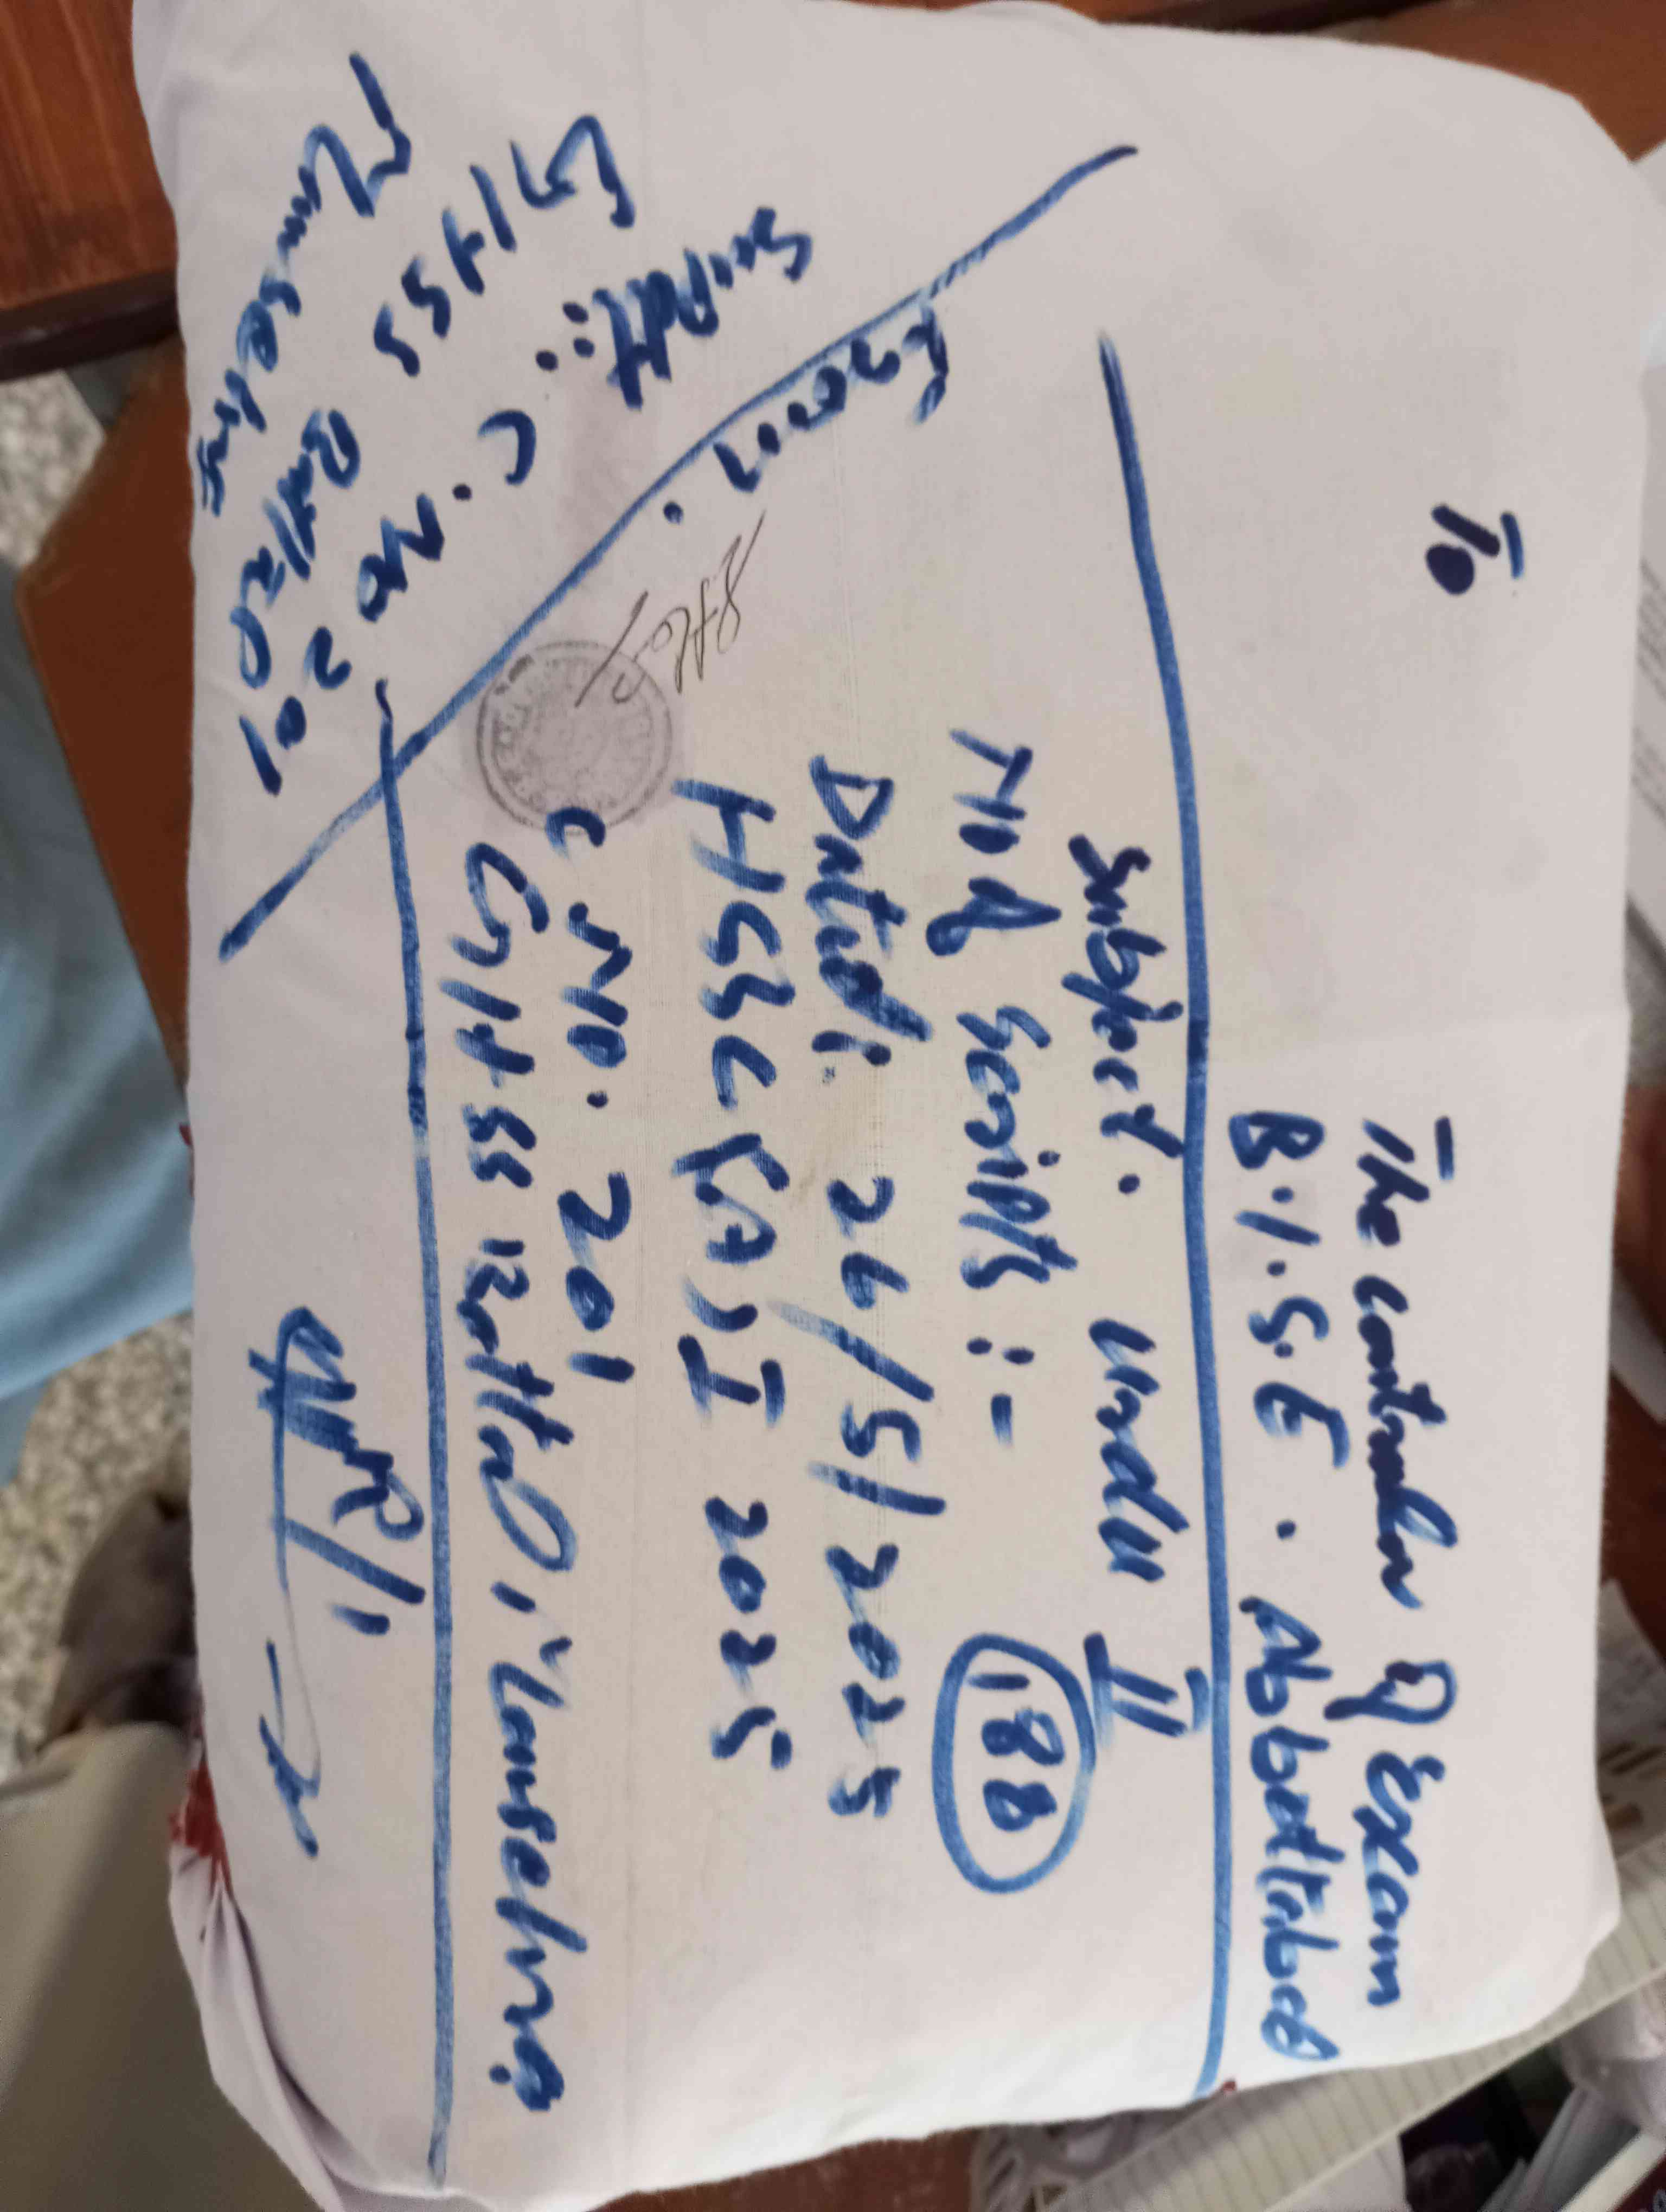 To
The controller of Exam
B.I.S.E. Abbottabad
Subject. Urdu II
No of Scripts :- 188
Dated: 26/5/2025
HSSC (A) I 2025
C No. 201
GHSS Battal Mansehra
From.
Supdtt:
C. No 201
GHSS Battal
Mansehra